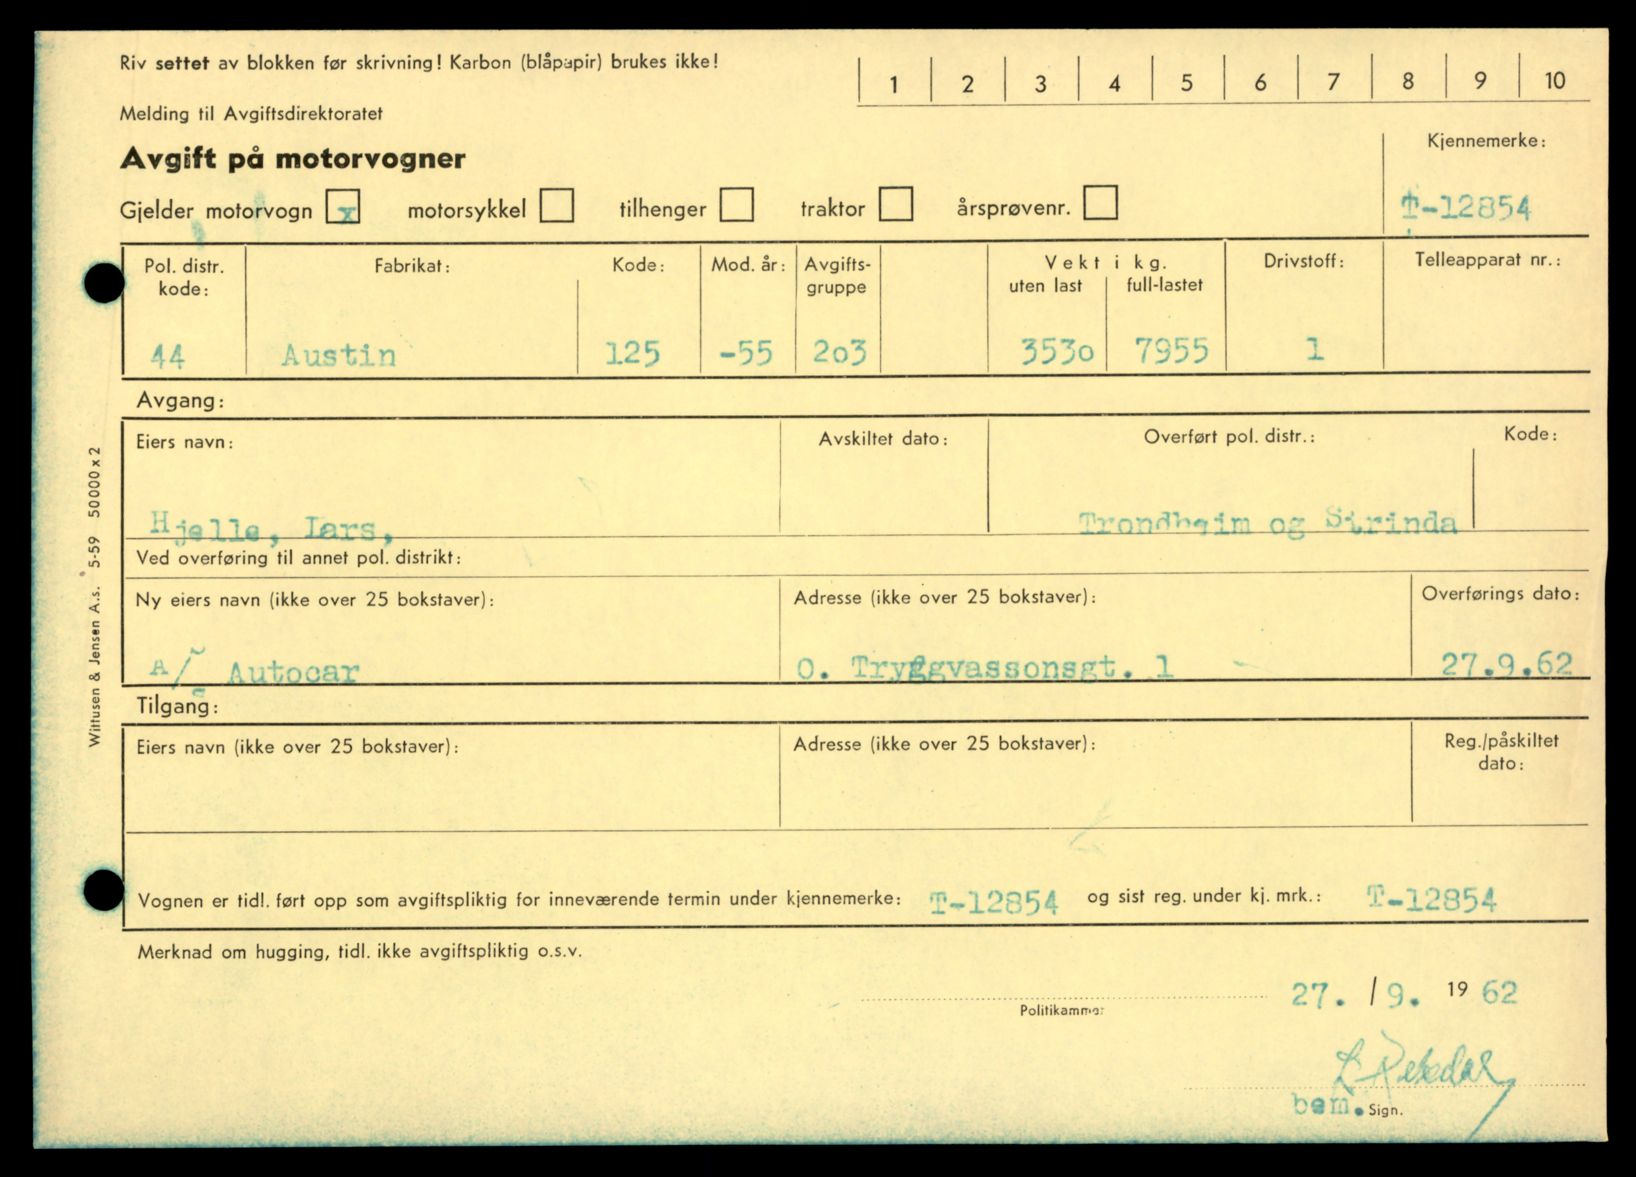 Riv settet av blokken før skrivning! Karbon (blåpapir) brukes ikke!
1 2 3 4 5 6 7 8 9 10
Melding til Avgiftsdirektoratet
Avgift på motorvogner
Kjennemerke:
Gjelder motorvogn x motorsykkel tilhenger traktor årsprøvenr.
T-12854
Pol. distr. kode: Fabrikat: Kode: Mod. år: Avgifts-gruppe Vekt i kg. uten last full-lastet Drivstoff: Telleapparat nr.:
44 Austin 125 -55 203 3530 7955 1
Avgang:
Eiers navn: Avskiltet dato: Overført pol. distr.: Kode:
Hjelle, Lars, Trondheim og Strinda
Ved overføring til annet pol. distrikt:
Ny eiers navn (ikke over 25 bokstaver): Adresse (ikke over 25 bokstaver): Overførings dato:
A/S Autocar O. Tryggvassonsgt. 1 27.9.62
Tilgang:
Eiers navn (ikke over 25 bokstaver): Adresse (ikke over 25 bokstaver): Reg./påskiltet dato:
Vognen er tidl. ført opp som avgiftspliktig for inneværende termin under kjennemerke: T-12854 og sist reg. under kj. mrk.: T-12854
Merknad om hugging, tidl. ikke avgiftspliktig o.s.v.
27. /9. 19 62
Politikammer
bem. Sign.
Wittusen & Jensen A.s. 5-59 50000 x 2